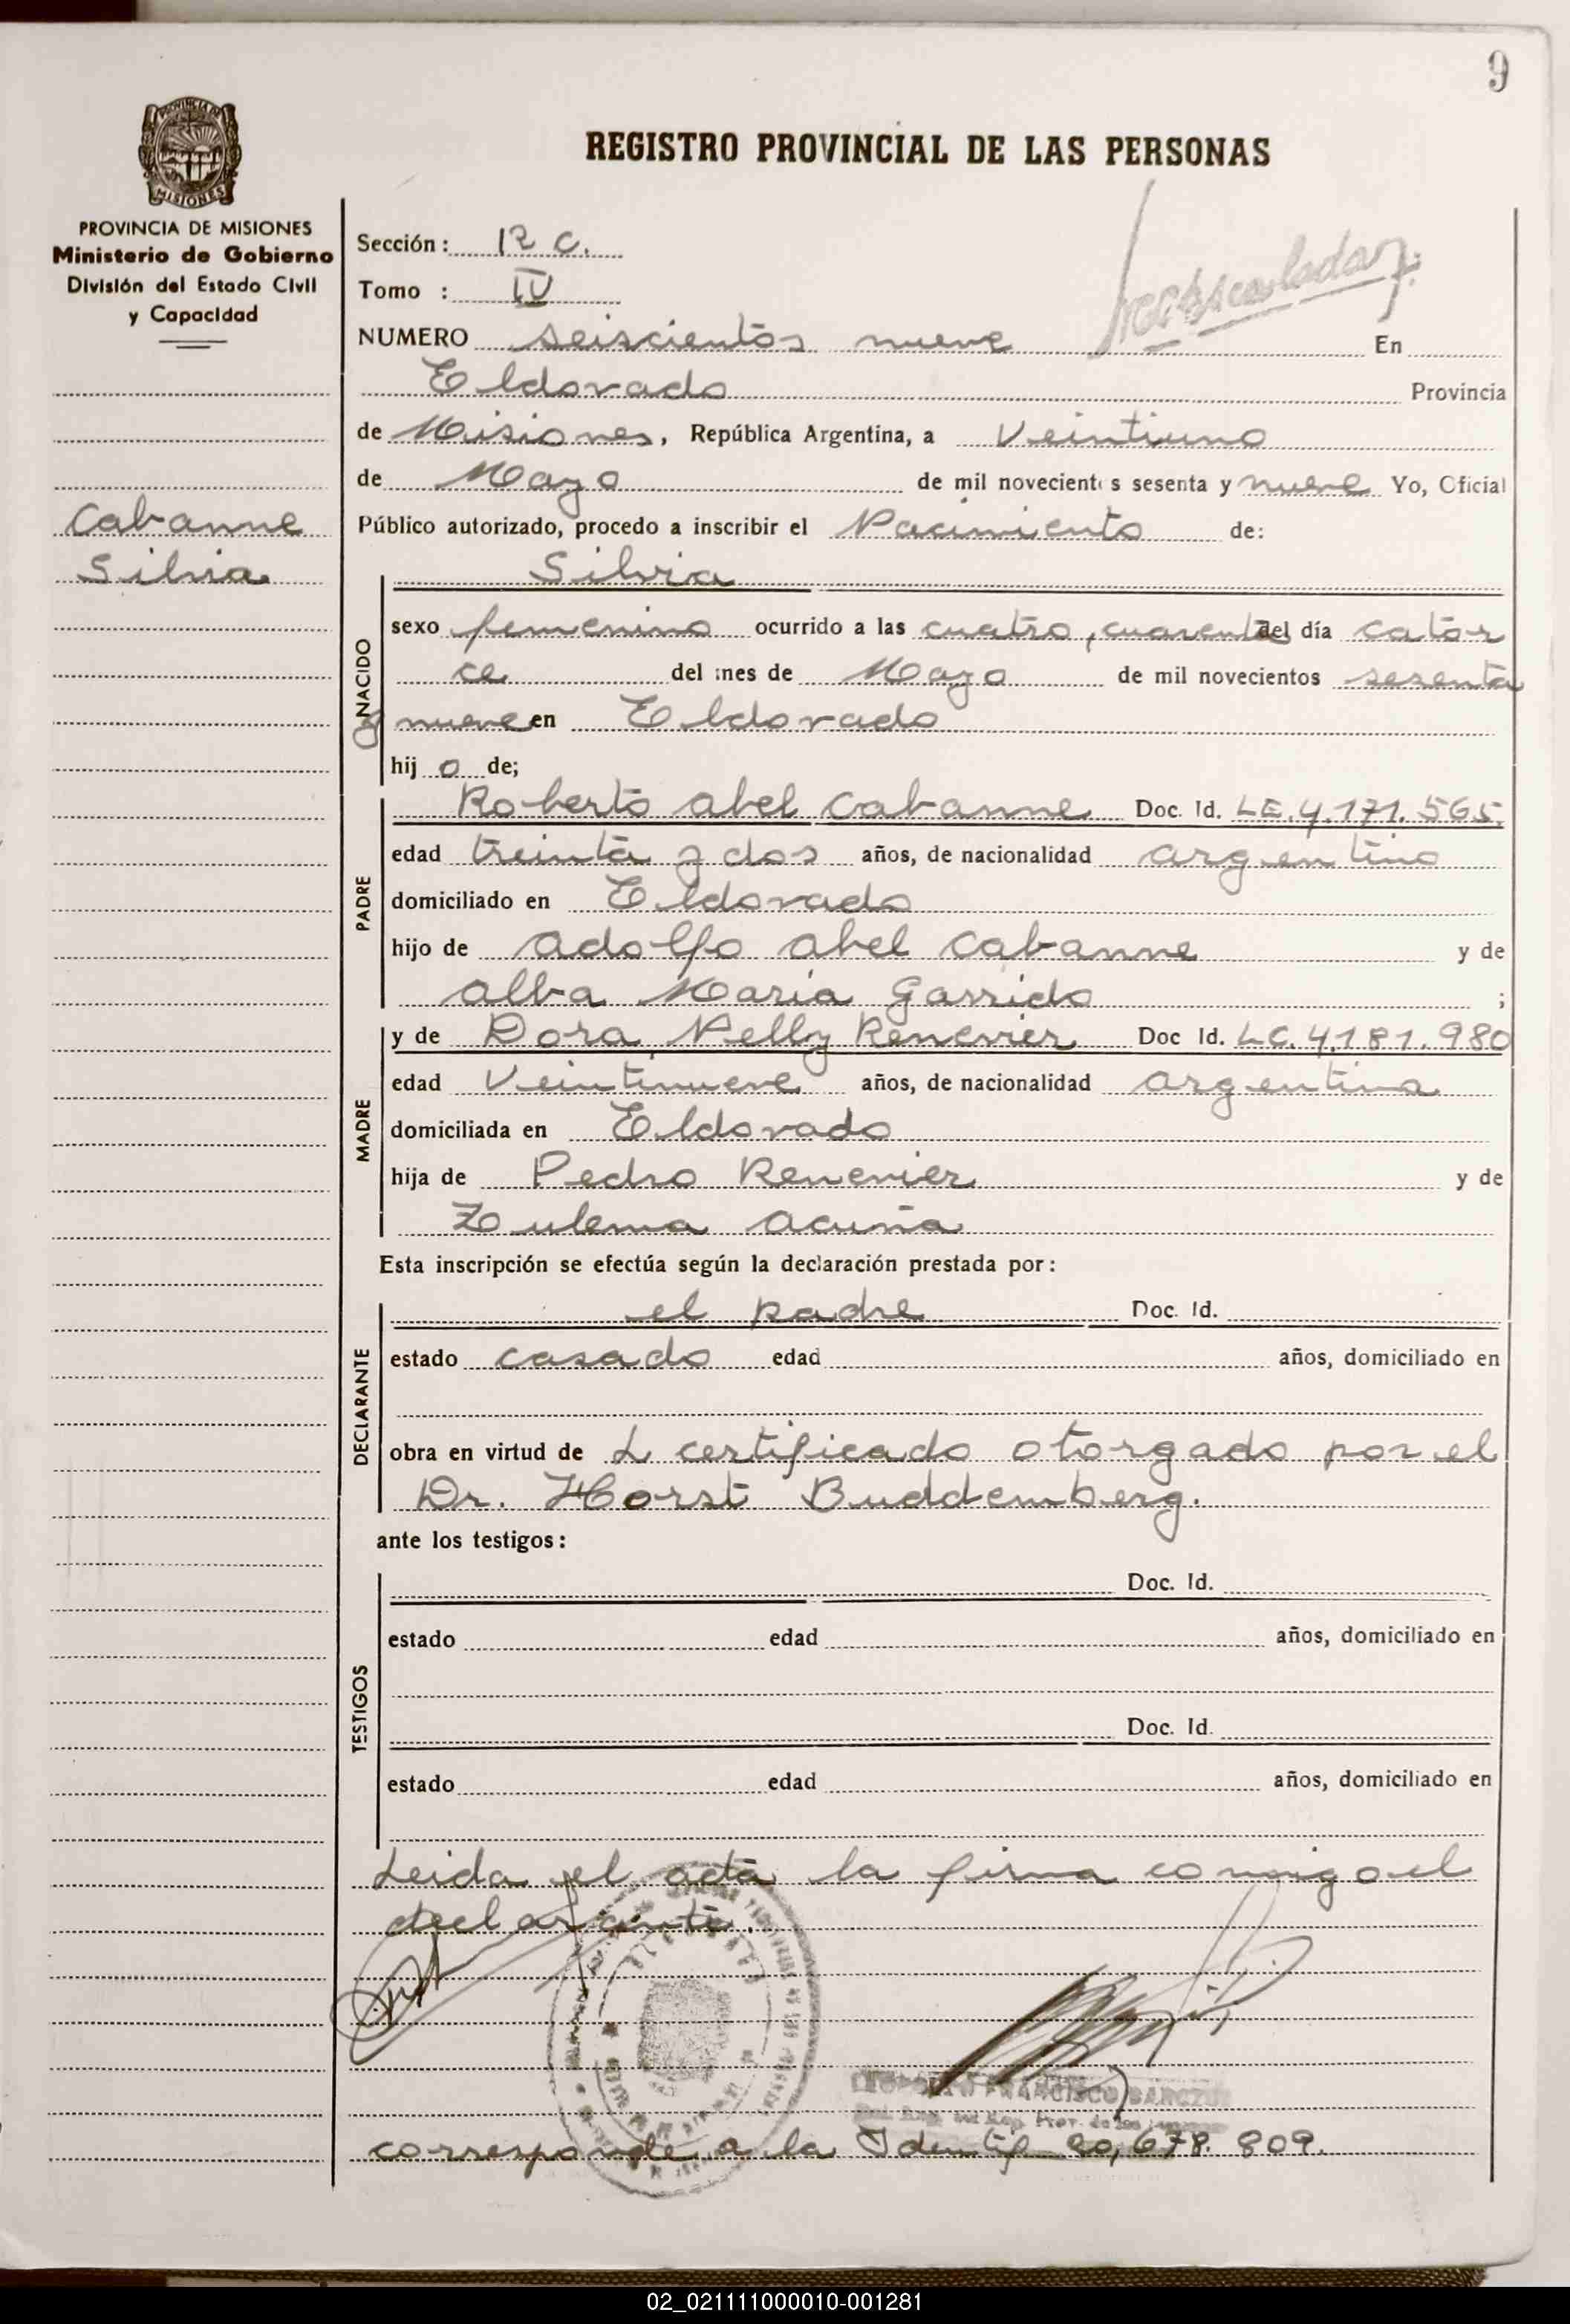 9
PROVINCIA DE MISIONES
REGISTRO PROVINCIAL DE LAS PERSONAS
PROVINCIA DE MISIONES
Ministerio de Gobierno
División del Estado Civil
y Capacidad
Cabanne
Silvia
Sección: 1ª C.
Tomo : IV
NUMERO seiscientos nueve En
Eldorado Provincia
de Misiones, República Argentina, a Veintiuno
de Mayo de mil novecientos sesenta y nueve Yo, Oficial
Público autorizado, procedo a inscribir el Nacimiento de:
Silvia
NACIDO
sexo femenino ocurrido a las cuatro, cuarenta del día cator
ce del mes de Mayo de mil novecientos sesenta
y nueve en Eldorado
hij o de;
PADRE
Roberto Abel Cabanne Doc. Id. LE. 4.171.565.
edad treinta y dos años, de nacionalidad argentino
domiciliado en Eldorado
hijo de Adolfo Abel Cabanne y de
Alba Maria Garrido ;
MADRE
y de Dora Nelly Renevier Doc Id. LC. 4.181.980
edad Veintinueve años, de nacionalidad argentina
domiciliada en Eldorado
hija de Pedro Renevier y de
Zulema Acuña
Esta inscripción se efectúa según la declaración prestada por:
DECLARANTE
el padre Doc. Id.
estado casado edad años, domiciliado en
obra en virtud de L certificado otorgado por el
Dr. Horst Buddemberg.
ante los testigos:
TESTIGOS
Doc. Id.
estado edad años, domiciliado en
Doc. Id.
estado edad años, domiciliado en
Leida el acta la firma conmigo el
declarante.
FRANCISCO
corresponde a la Identif 20,678.809.
02_021111000010-001281